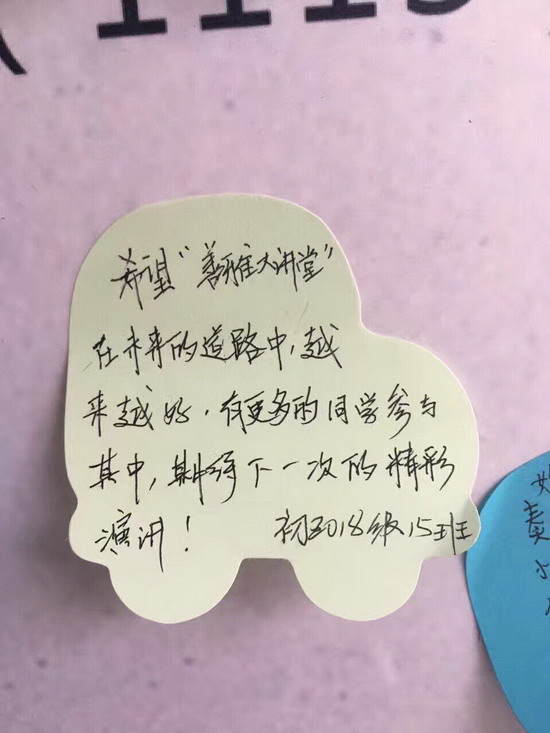 希望“善雅大讲堂”
在未来的道路中，越
来越好，有更多的同学参与
其中，期待下一次的精彩
演讲！ 初2018级15班